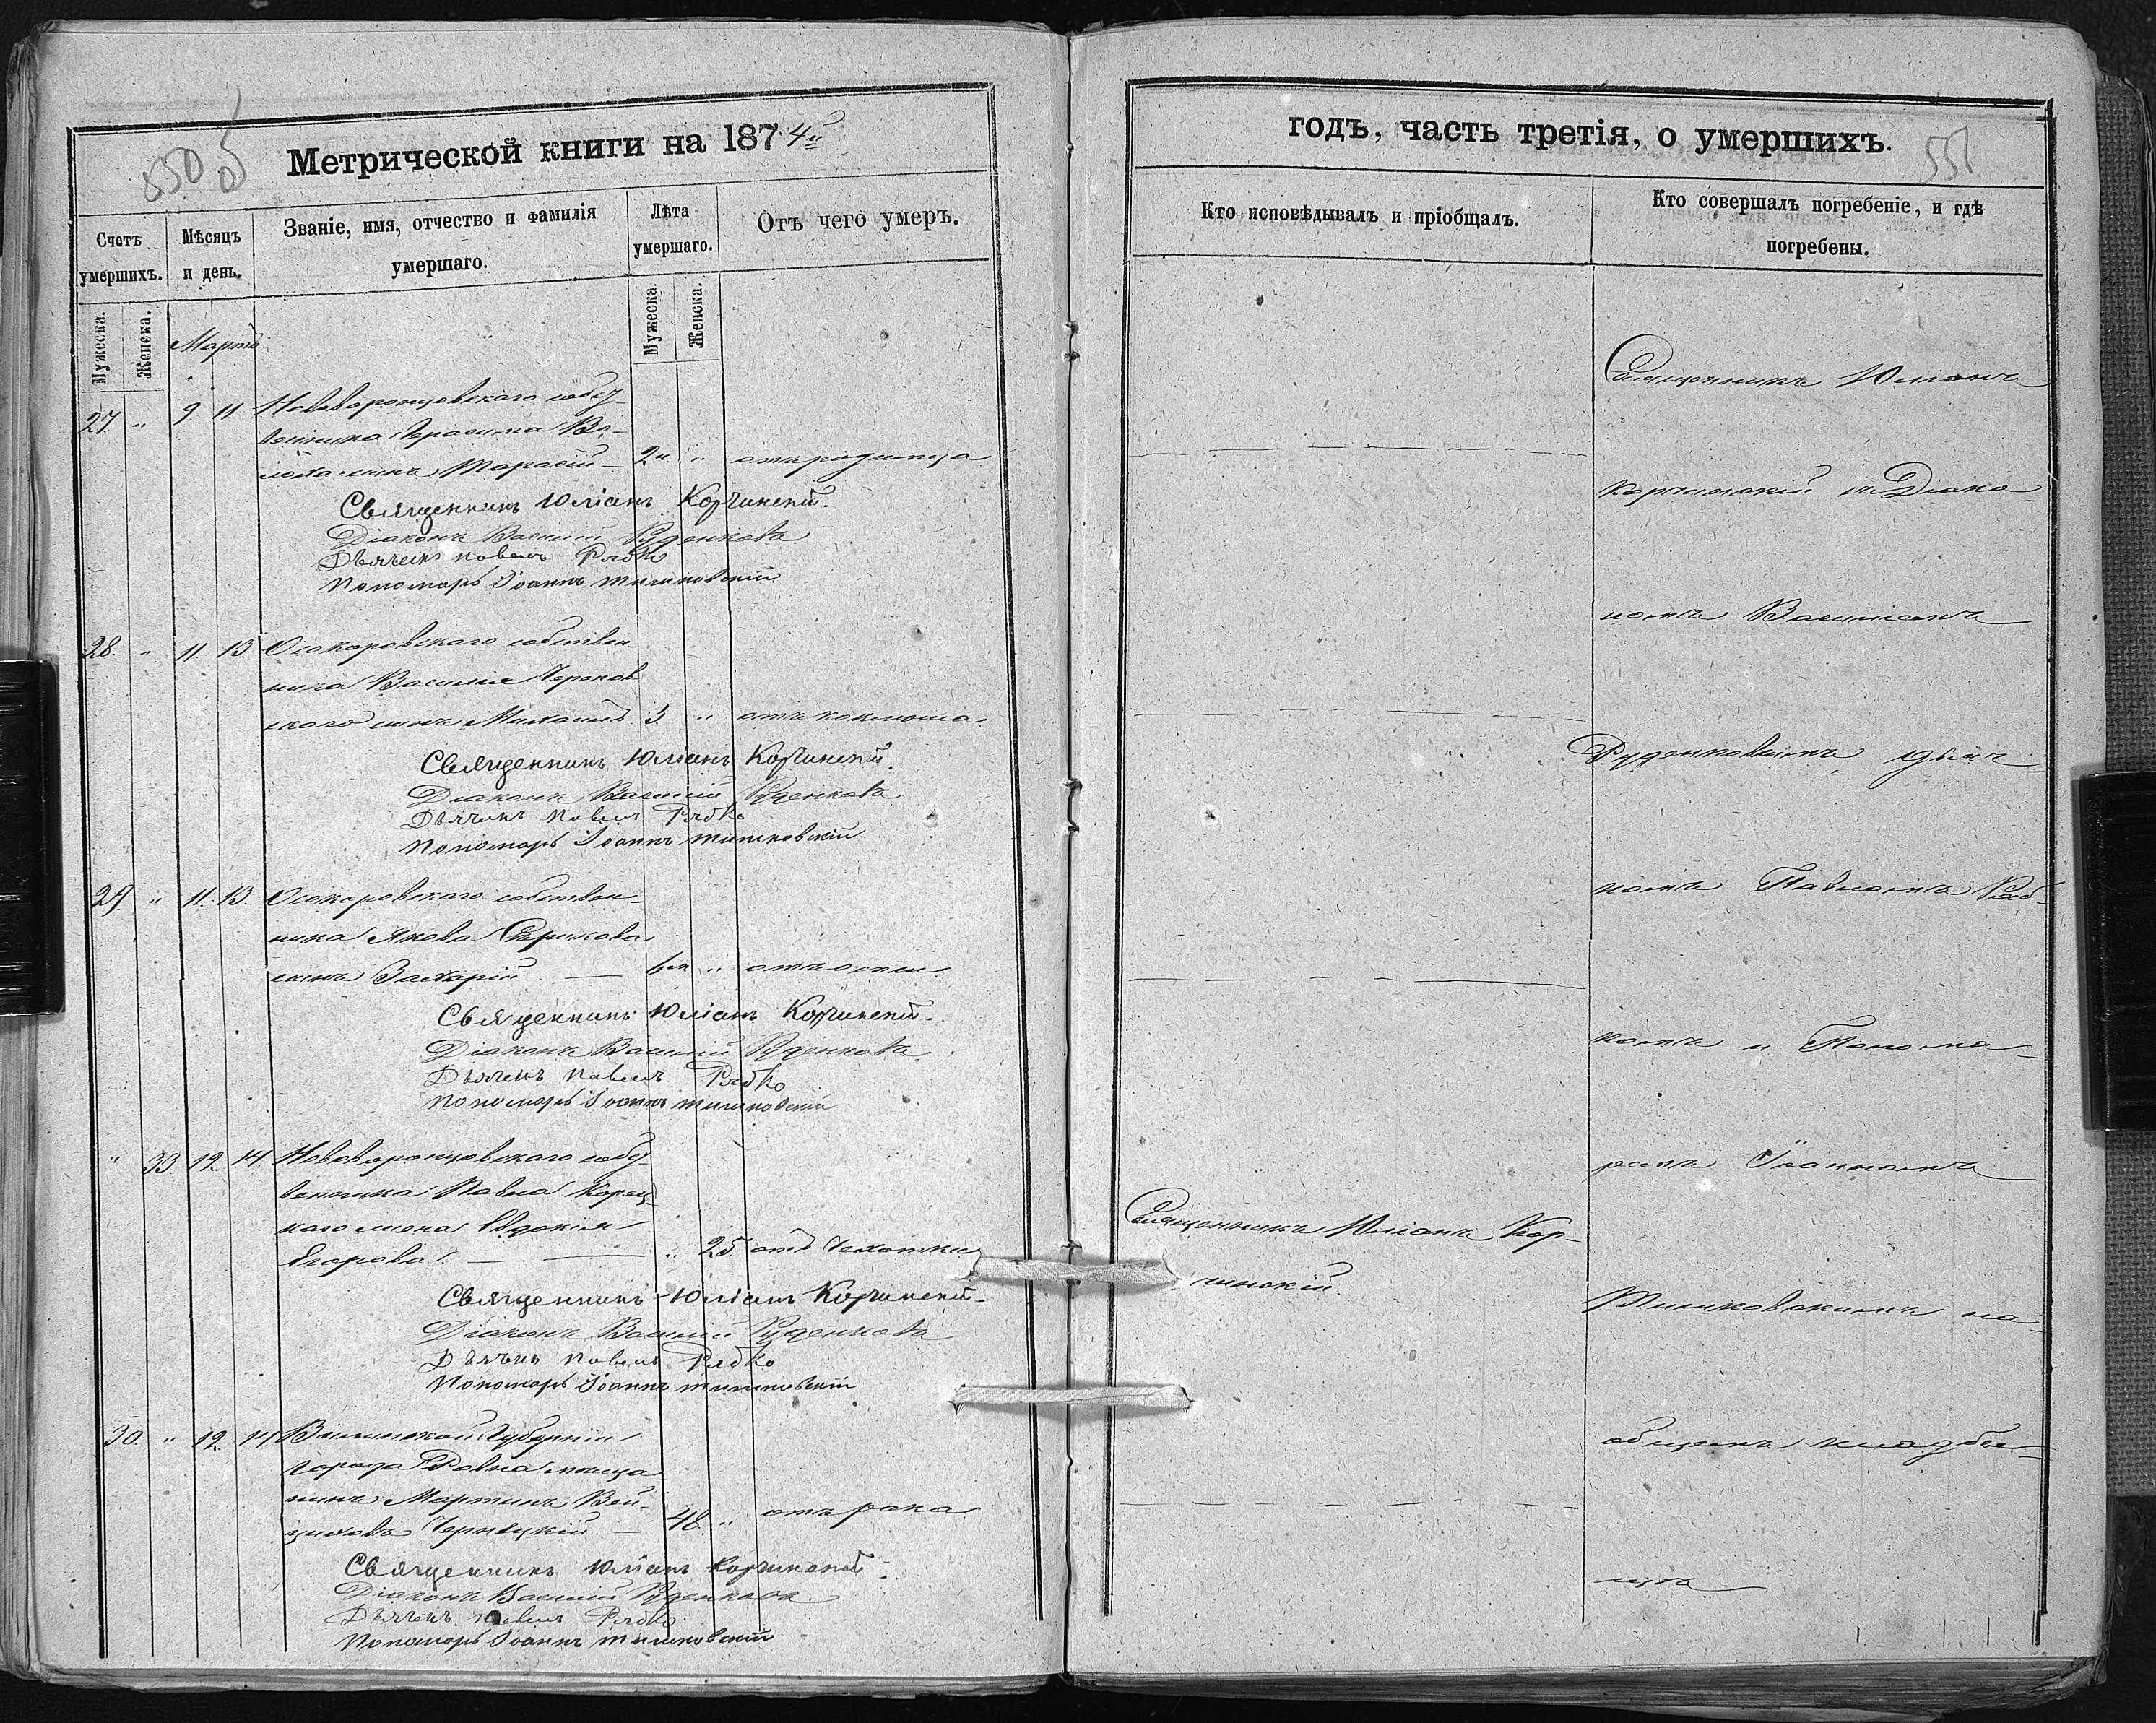 550 об
Метрической книги на 1874й
Счетъ умершихъ.
Мѣсяцъ и день.
Званіе, имя, отчество и фамилія умершаго.
Лѣта умершаго.
Отъ чего умеръ.
Мужеска.
Женска.
Мужеска.
Женска.
Мартъ
27. " 9 11. Нововоронцовскаго собст-
венника Герасима
сынъ Тарасій — 2 " отъ родимца
Священникъ Юліанъ Корчинскій.
Діаконъ Василий Руденковъ
Дьячекъ Павелъ Рябко
Пономарь Іоаннъ Тишковскій
28. " 11. 13. Осокоровскаго собствен-
ника Василія
скаго сынъ Михаилъ 3. " отъ коклюша.
Священникъ Юліанъ Корчинскій.
Діаконъ Василий Руденковъ
Дьячекъ Павелъ Рябко
Пономарь Іоаннъ Тишковскій
29. " 11. 13. Осокоровскаго собствен-
ника Якова
сынъ Захарій — " отъ оспы
Священникъ Юліанъ Корчинскій.
Діаконъ Василій Руденковъ
Дьячекъ Павелъ Рябко
Пономарь Іоаннъ Тишковскій
" 33. 12. 14. Нововоронцовскаго собст-
венника Павла Корец-
каго жена Евдокія
Егорова. — " 25 отъ чахотки
Священникъ Юліанъ Корчинскій.
Діаконъ Василий Руденковъ
Дьячекъ Павелъ Рябко
Пономарь Іоаннъ Тишковскій
30. " 12. 14. Губерніи
города Ровна мѣща
нинъ Мартинъ Вой-
цеховъ — 48. " отъ рака
Священникъ Юліанъ Корчинскій.
Діаконъ Василий Руденковъ
Дьячекъ Павелъ Рябко
Пономарь Іоаннъ Тишковскій
годъ, часть третія, о умершихъ.
551
Кто исповѣдывалъ и пріобщалъ.
Кто совершалъ погребеніе, и гдѣ погребены.
Священникъ Юліанъ
Корчинскій съ Діако
номъ Василіемъ
Руденковымъ, дьяч-
комъ Павломъ Ряб-
комъ и Понома-
ремъ Іоанномъ
Священникъ Юліанъ Кор-
чинскій.
Тишковскимъ на
общемъ кладби-
щѣ